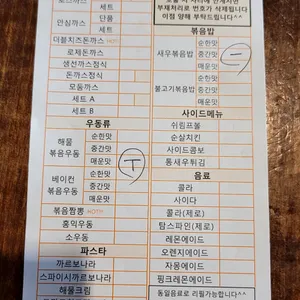 세트
안심까스 단품
세트
더블치즈돈까스 HOT!
로제돈까스
생선까스정식
돈까스정식
모둠까스
세트 A
세트 B
우동류
해물볶음우동 순한맛
중간맛
매운맛
베이컨볶음우동 순한맛
중간맛
매운맛
볶음짬뽕 HOT!
홍익우동
소우동
파스타
까르보나라
스파이시까르보나라
해물크림
부재처리로 번호가 삭제됩니다
이점 양해 부탁드립니다^^
볶음밥
새우볶음밥 순한맛
중간맛
매운맛
불고기볶음밥 순한맛
중간맛
매운맛
사이드메뉴
쉬림프볼
순살치킨
사이드콤보
통새우튀김
음료
콜라
사이다
콜라(제로)
탐스파인(제로)
레몬에이드
오렌지에이드
자몽에이드
핑크레몬에이드
동일음료로 리필가능합니다^^